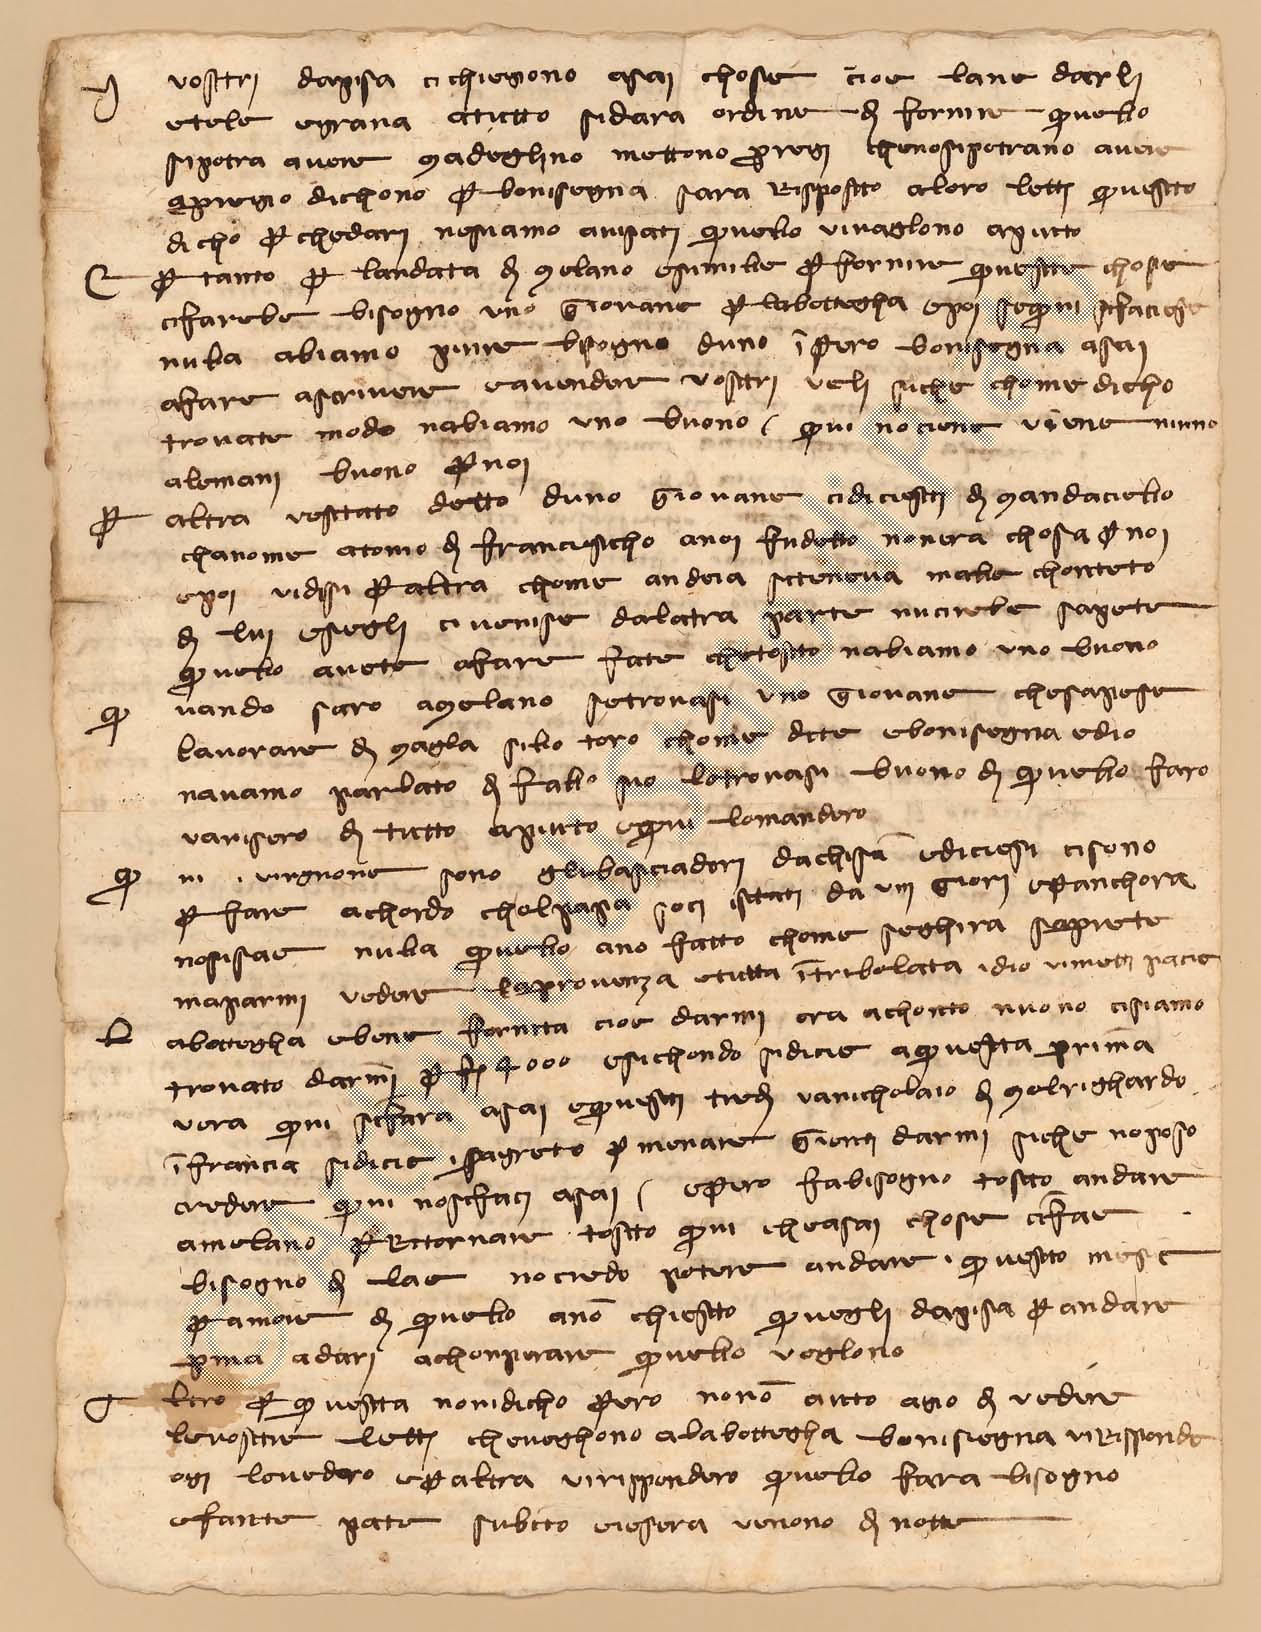 I vostri dapisa cichiegono asai chose cioe lane darli
etele egrana atutto sidara ordine di fornire quello
sipotra avere madeglino mettono pregi chenosipotrano avere
apregio dichono per bonisegna sara Risposto aloro lett questo
dicho perchedari nesiamo avisati quello vivaglono apunto
E per tanto per landata di melano esimile per fornire queste chose
cifarebe bisogno uno giovane per labottegha epoi sequi sifaciese
nulla abiamo pure bisogno duno inpero bonisegna asai
afare ascrivere eavendere vostri veli siche chome dicho
trovate modo nabiamo uno buono / qui nociene viene niuno
alemani buono per noi
Per altra vestato detto duno giovane cidiciesti di mandaciello
chanome atomo di franciescho anoi fudetto nonera chosa per noi
epoi vidissi per altra chome andria siteneva male chonteto
di lui esegli civenise dalatra parte nucirebe sapete
quello avete afare fate chetosto nabiamo uno buono
Qu uando saro amelano setrovasi uno giovane chesapese
lavorare di magla sillo toro chome dite ebonisegna edio
navamo parlato di fallo sio lotrovasi buono di quello faro
vavisero di tutto apunto equi lomandero
Qu ui . vingnone sono glinbasciadori dachisa ediciesi cisono
per fare achordo cholpapa soci istati da viii giorni eperanchora
nosisae nulla quello ano fatto chome seghira saprete
maparmi vedere laprovenza etutta intribolata idio vimetti pacie
L abottegha ebene fornita cioe darmi ora achonto nuono cisiamo
trovato darmi per f 4000 esichondo sidicie aquesta prima
vera qui sifara asai equesti tredi vanicholaio di melrighardo
infrancia sidicie isagreto per menare gienti darmi siche noposo
credere qui nosifaci asai / epero fabisogno tosto andare
amelano per Ritornare tosto qui cheasai chose cifae
bisogno di lae nocredo potere andare . questo mese
per amore di quello ano chiesto quegli dapisa per andare
prima adari achonperare quello voglono
A ltro per questa nonidicho pero nono auto agio di vedere
levostre lett cheveghono alabottegha bonisiegna viRisponde
ogi levedero eperaltra virispondero quello fara bisogno
efante parte subito eiesera venono di notte